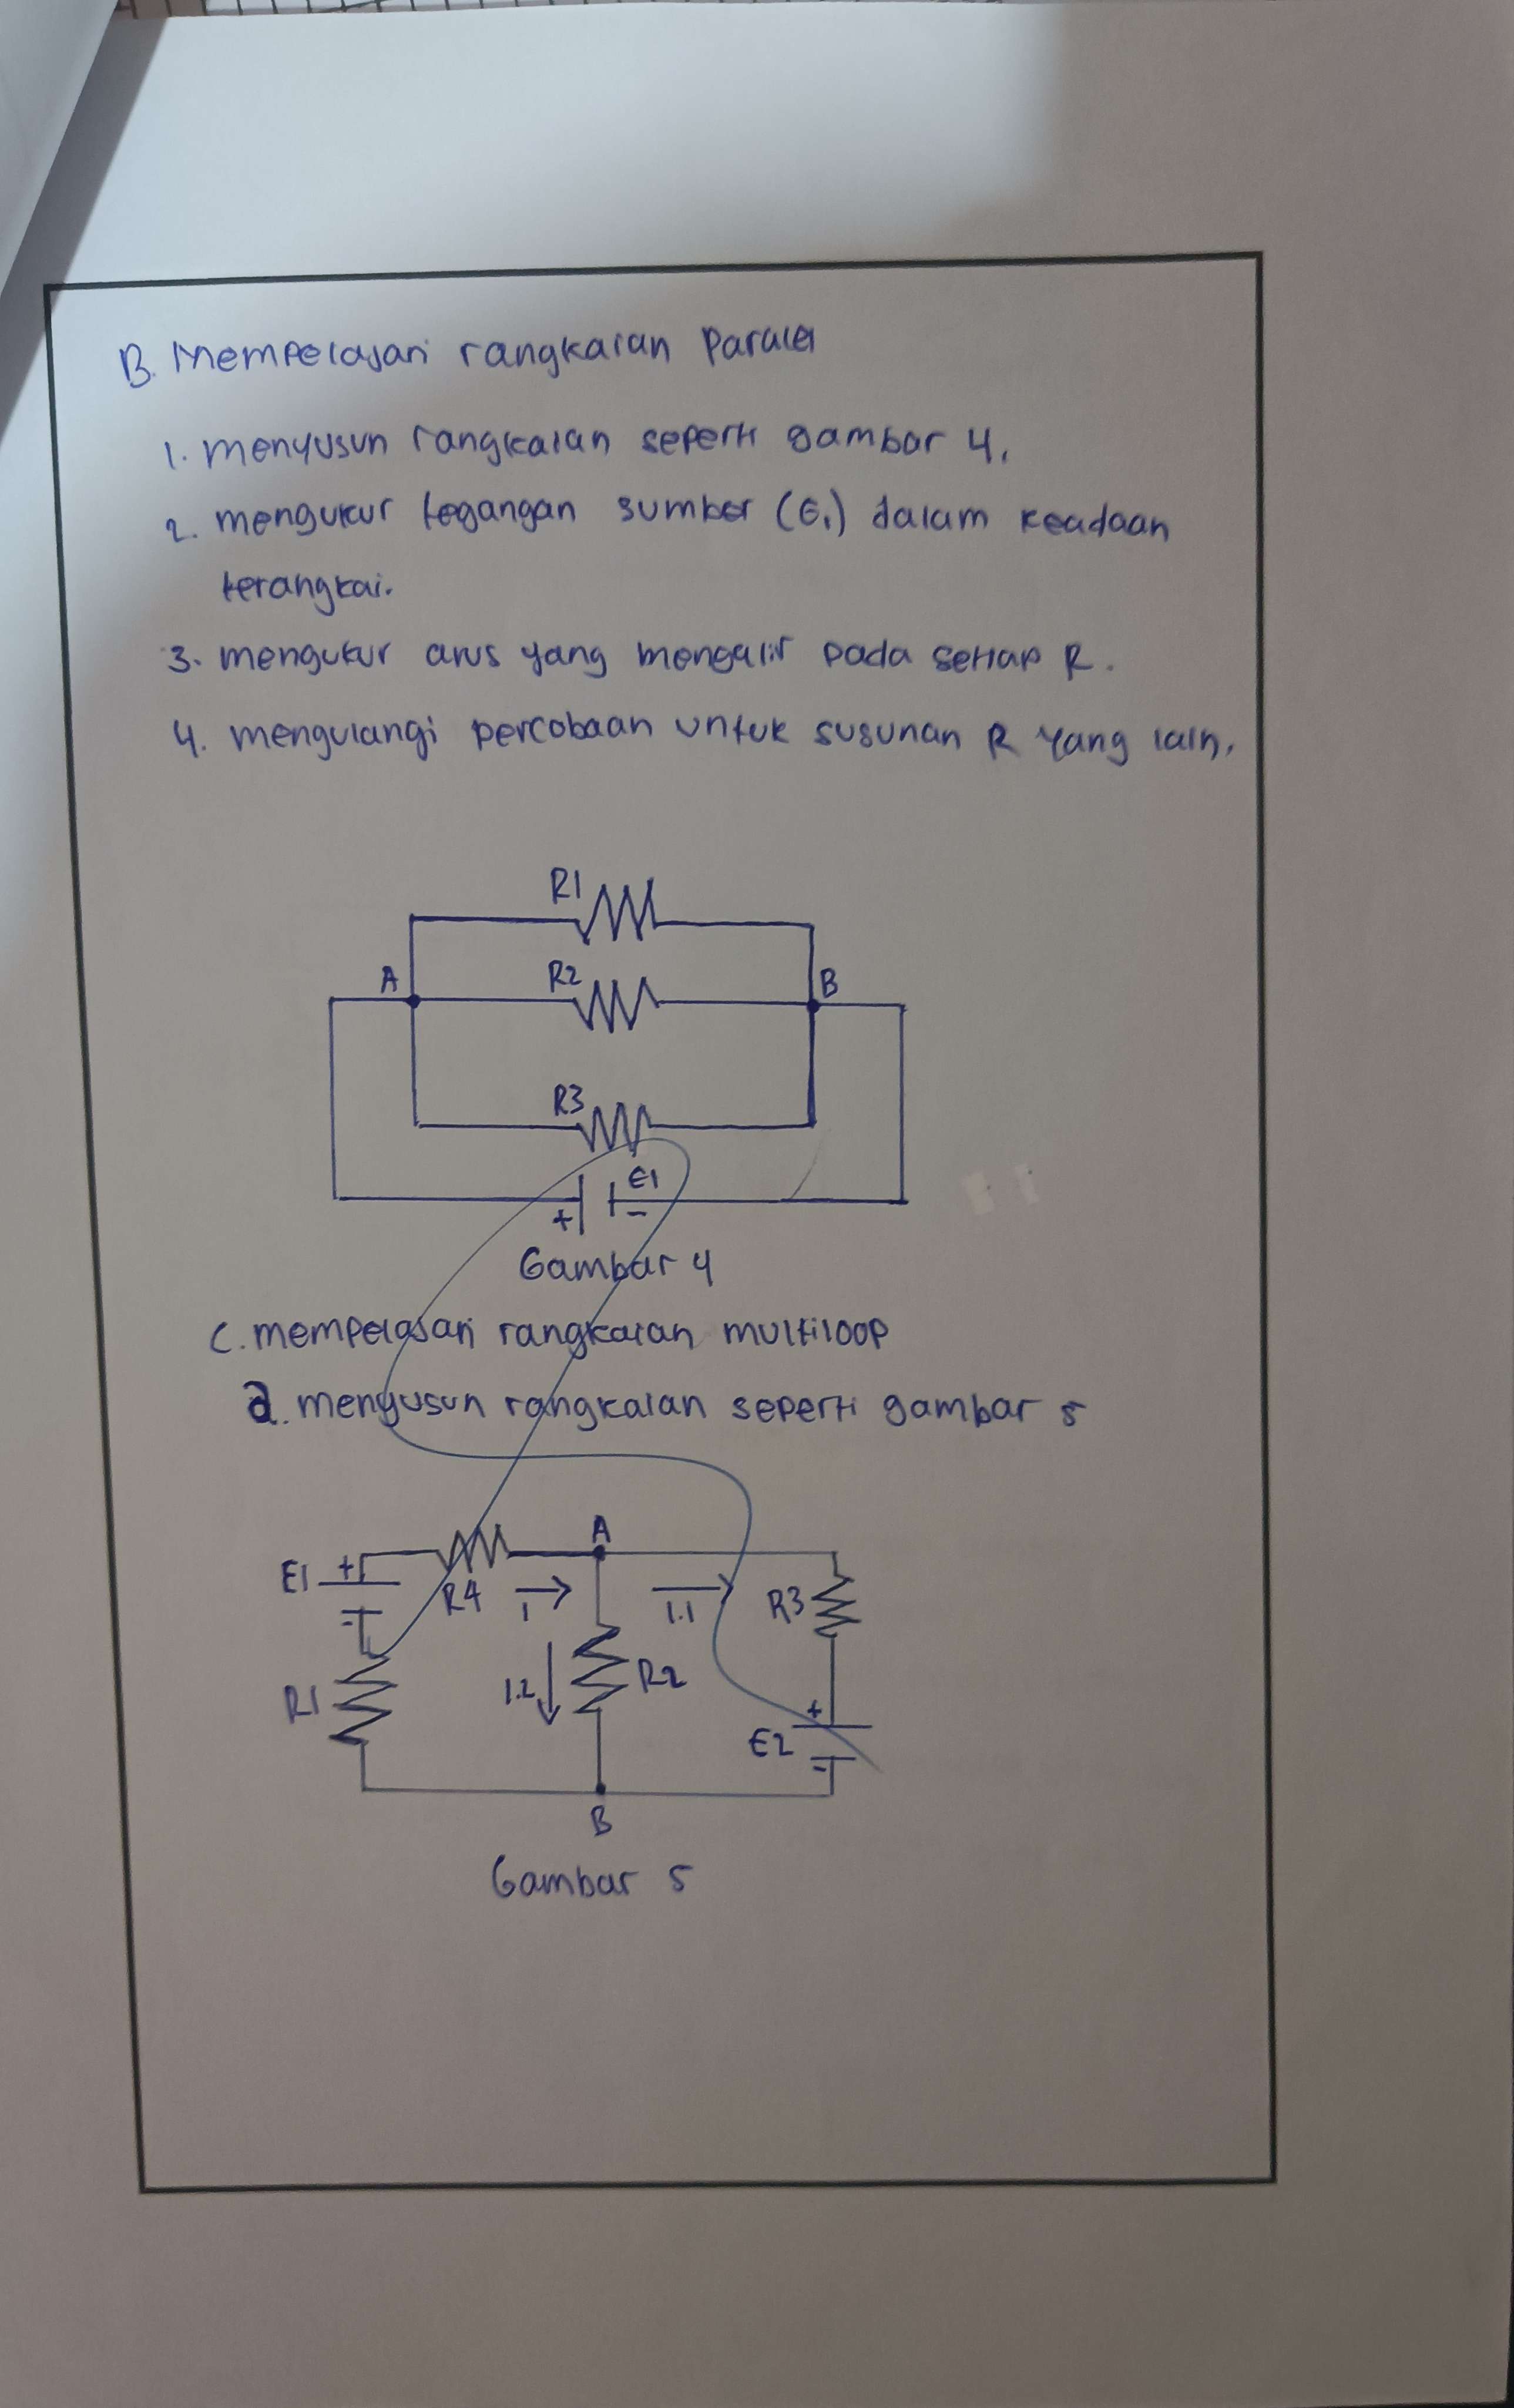 B. Mempelajari rangkaian Paralel
1. menyusun rangkaian seperti gambar 4.
2. mengukur tegangan sumber (E₁) dalam keadaan
terangkai.
3. mengukur arus yang mengalir pada setiap R.
4. mengulangi percobaan untuk susunan R yang lain.
R1
A R2 B
R3
E1
+ -
Gambar 4
C. mempelajari rangkaian multiloop
a. menyusun rangkaian seperti gambar 5
A
E1 + R4 I I.1 R3
-
R1 I.2 R2
+
E2
-
B
Gambar 5